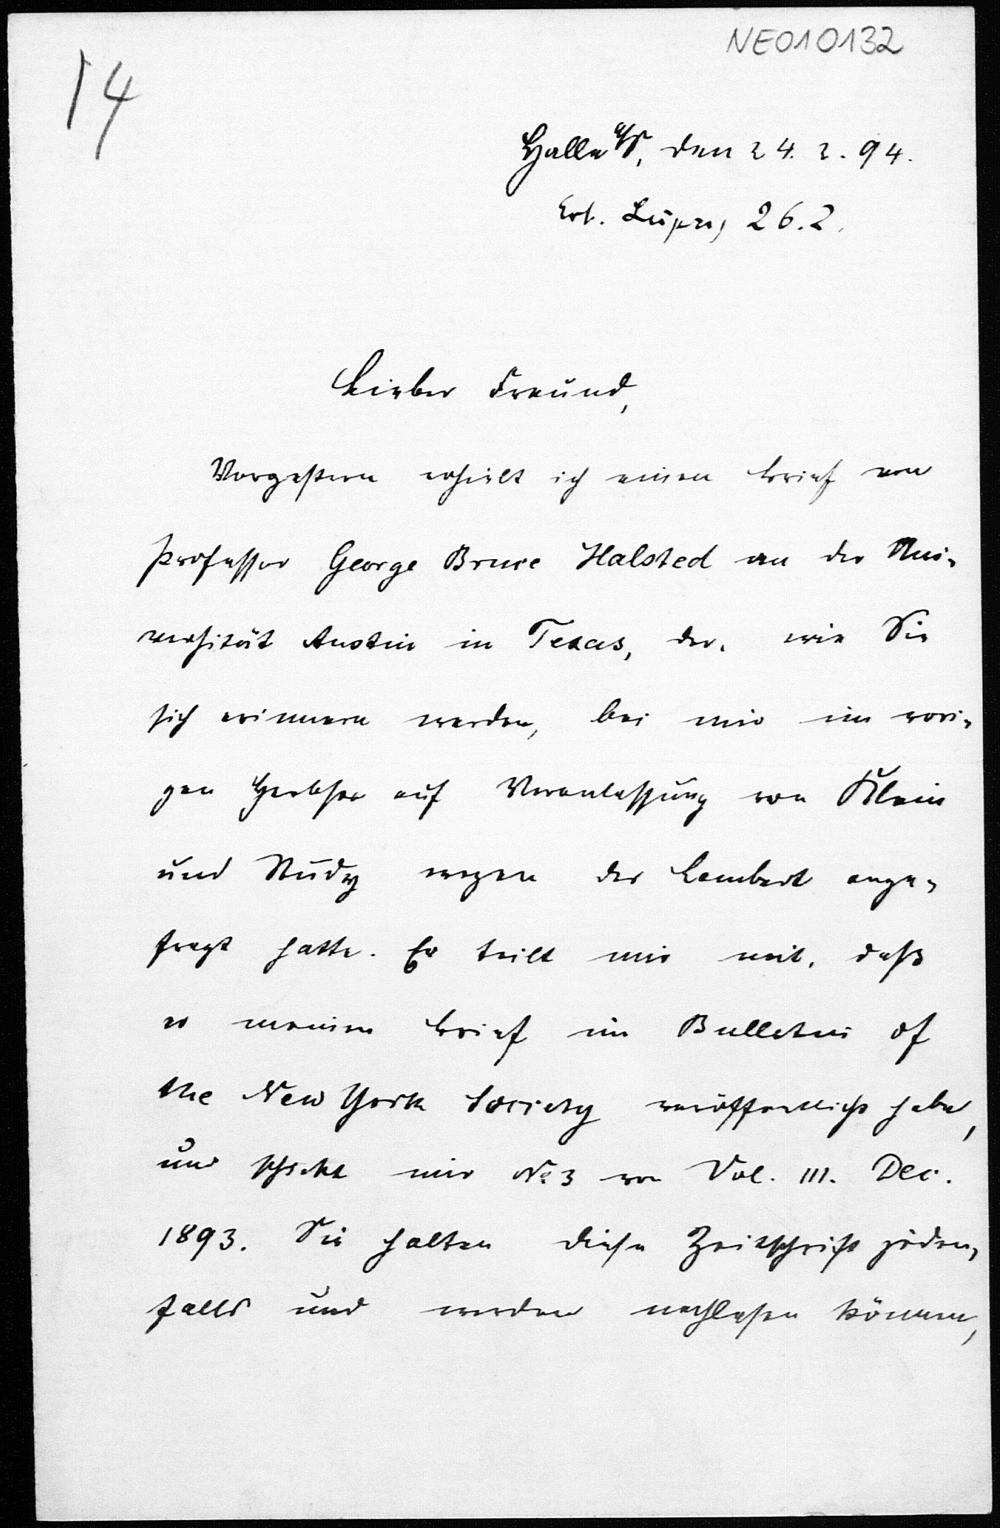 NE010132
14
Halle a/S, den 24. 2. 94.
Erh. Leipzig 26.2.
Lieber Freund,
Vorgestern erhielt ich einen Brief von
Professor George Bruce Halsted an der Uni-
versität Austin in Texas, der, wie Sie
sich erinnern werden, bei mir im vori-
gen Herbste auf Veranlassung von Klein
und Study wegen des Lambert ange-
fragt hatte. Er teilt mir mit, daß
er meinen Brief im Bulletin of
the New York Society veröffentlicht habe,
und schickt mir No 3 von Vol. III. Dec.
1893. Sie halten diese Zeitschrift jeden-
falls und werden nachlesen können,